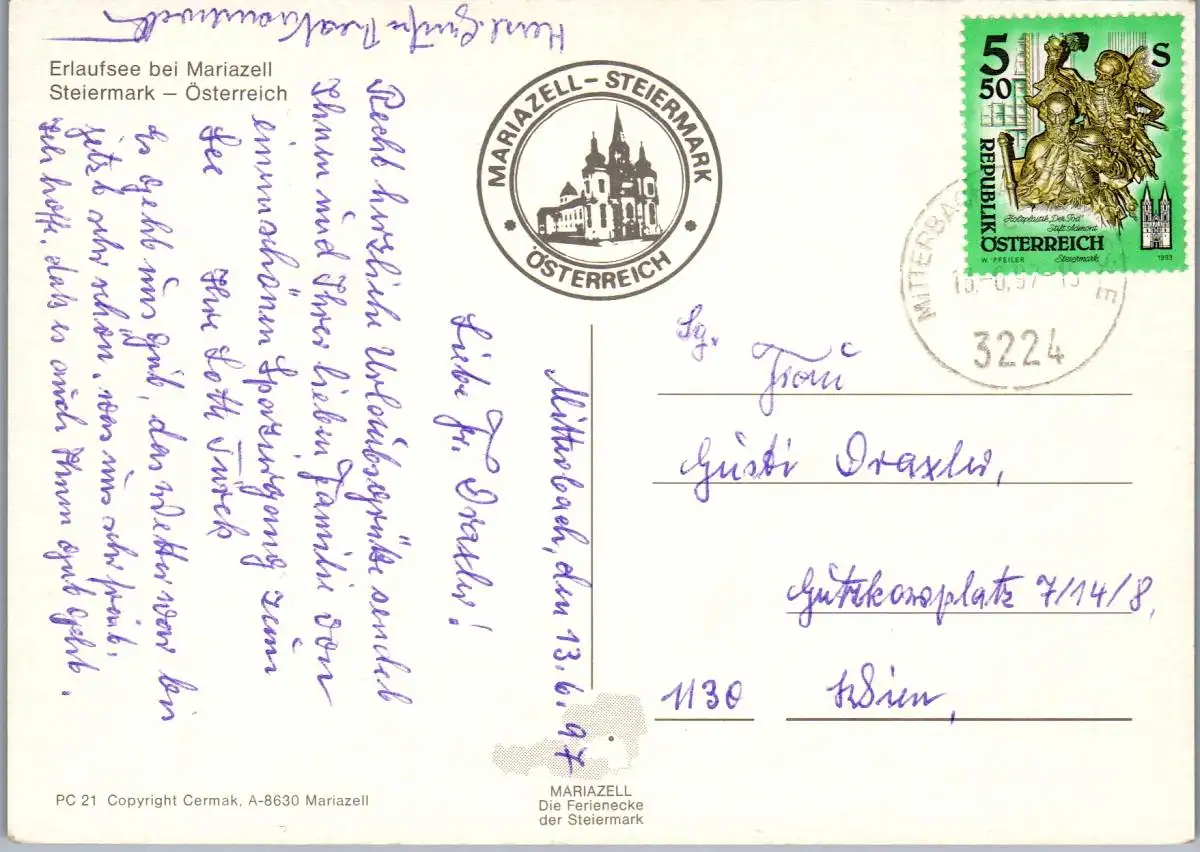 Erlaufsee bei Mariazell
Steiermark – Österreich
MARIAZELL – STEIERMARK
* ÖSTERREICH *
5 50 S
REPUBLIK
ÖSTERREICH
Holzplastik „Der Tod"
Stift Admont
Steiermark
W. PFEILER
1993
MITTERBACH
3224
Mitterbach, den 13.6.97
Liebe Fr. Draxler!
Recht herzliche Urlaubsgrüße sendet
Ihnen und Ihrer lieben Familie von
einem schönen Spaziergang zum
See Ihre Lotte Türck
Es geht uns gut, das Wetter war bis
jetzt sehr schön, was uns sehr freut.
Ich hoffe, daß es auch Ihnen gut geht.
Herzl. Grüße
Sg.
Frau
Gusti Draxler,
Gutzkowplatz 7/14/8,
1130 Wien,
MARIAZELL
Die Ferienecke
der Steiermark
PC 21 Copyright Cermak, A-8630 Mariazell